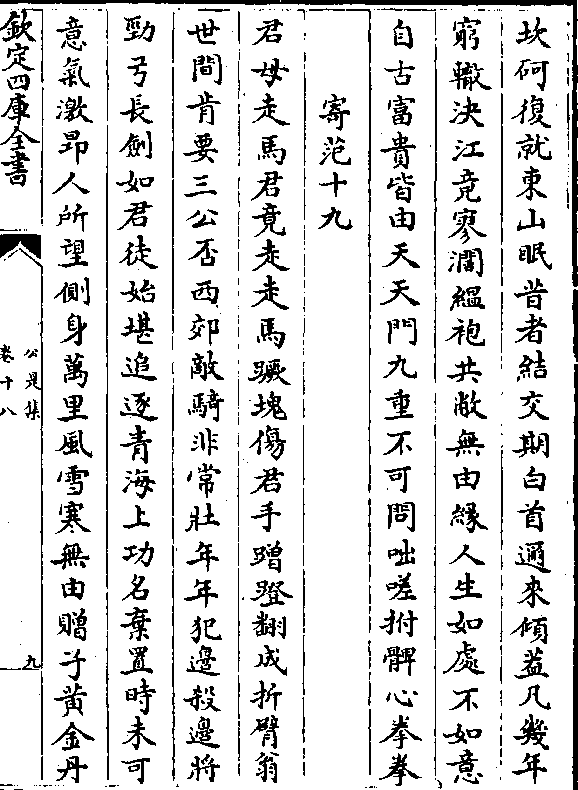 坎砢復就東山眠昔者結交期白首邇來傾葢凡幾年
窮轍決江竟寥濶緼袍共敝無由縁人生如處不如意
自古富貴皆由天天門九重不可問咄嗟拊髀心拳拳
寄范十九
君毋走馬君竟走走馬蹶塊傷君手蹭蹬翻成折臂翁
世間肯要三公否西郊敵騎非常壮年年犯邊殺邊將
勁弓長劍如君徒始堪追逐青海上功名棄置時未可
意氣激昻人所望側身萬里風雪寒無由贈子黄金丹
欽定四庫全書
公是集
卷十八
九